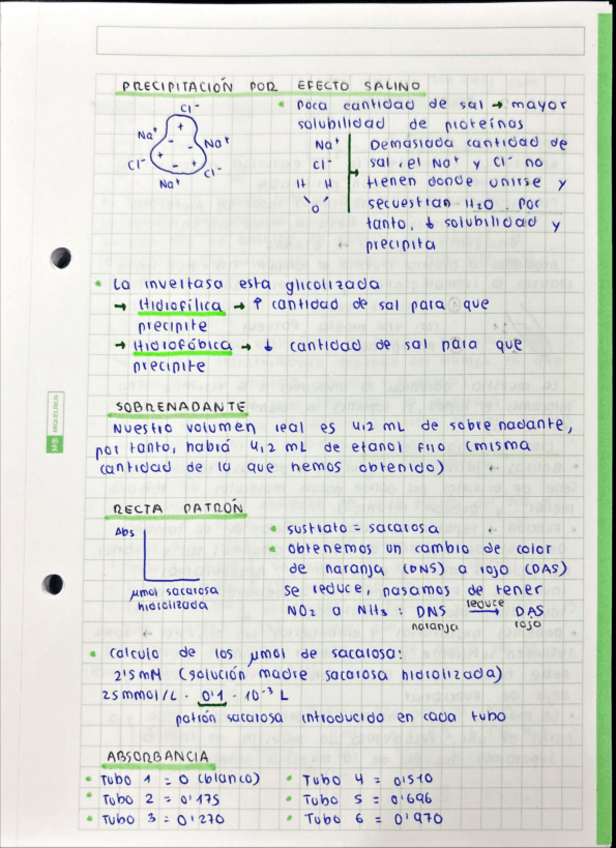 PRECIPITACIÓN POR EFECTO SALINO
Cl⁻
Na⁺
+
-
Na⁺
-
-
Cl⁻
+
-
+
Cl⁻
Na⁺
• Poca cantidad de sal → mayor
solubilidad de proteínas
Na⁺
Cl⁻
H H
O
Demasiada cantidad de
sal, el Na⁺ y Cl⁻ no
tienen donde unirse y
secuestran H₂O. Por
tanto, ↓ solubilidad y
precipita
• La invertasa esta glicolizada
→ Hidrofílica → ↑ cantidad de sal para que
precipite
→ Hidrofóbica → ↓ cantidad de sal para que
precipite
SOBRENADANTE
Nuestro volumen real es 4,2 mL de sobrenadante,
por tanto, habrá 4,2 mL de etanol frio (misma
cantidad de la que hemos obtenido)
RECTA PATRÓN
Abs
μmol sacarosa
hidrolizada
• sustrato = sacarosa
• obtenemos un cambio de color
de naranja (DNS) a rojo (DAS)
se reduce, pasamos de tener
NO₂ a NH₃ : DNS reduce→ DAS
naranja rojo
• calculo de los μmol de sacarosa:
2'5 mM (solución madre sacarosa hidrolizada)
25 mmol/L · 0'1 · 10⁻³ L
patrón sacarosa introducido en cada tubo
ABSORBANCIA
• Tubo 1 = 0 (blanco)
• Tubo 2 = 0'175
• Tubo 3 = 0'270
• Tubo 4 = 0'510
• Tubo 5 = 0'696
• Tubo 6 = 0'970
MIQUELRIUS